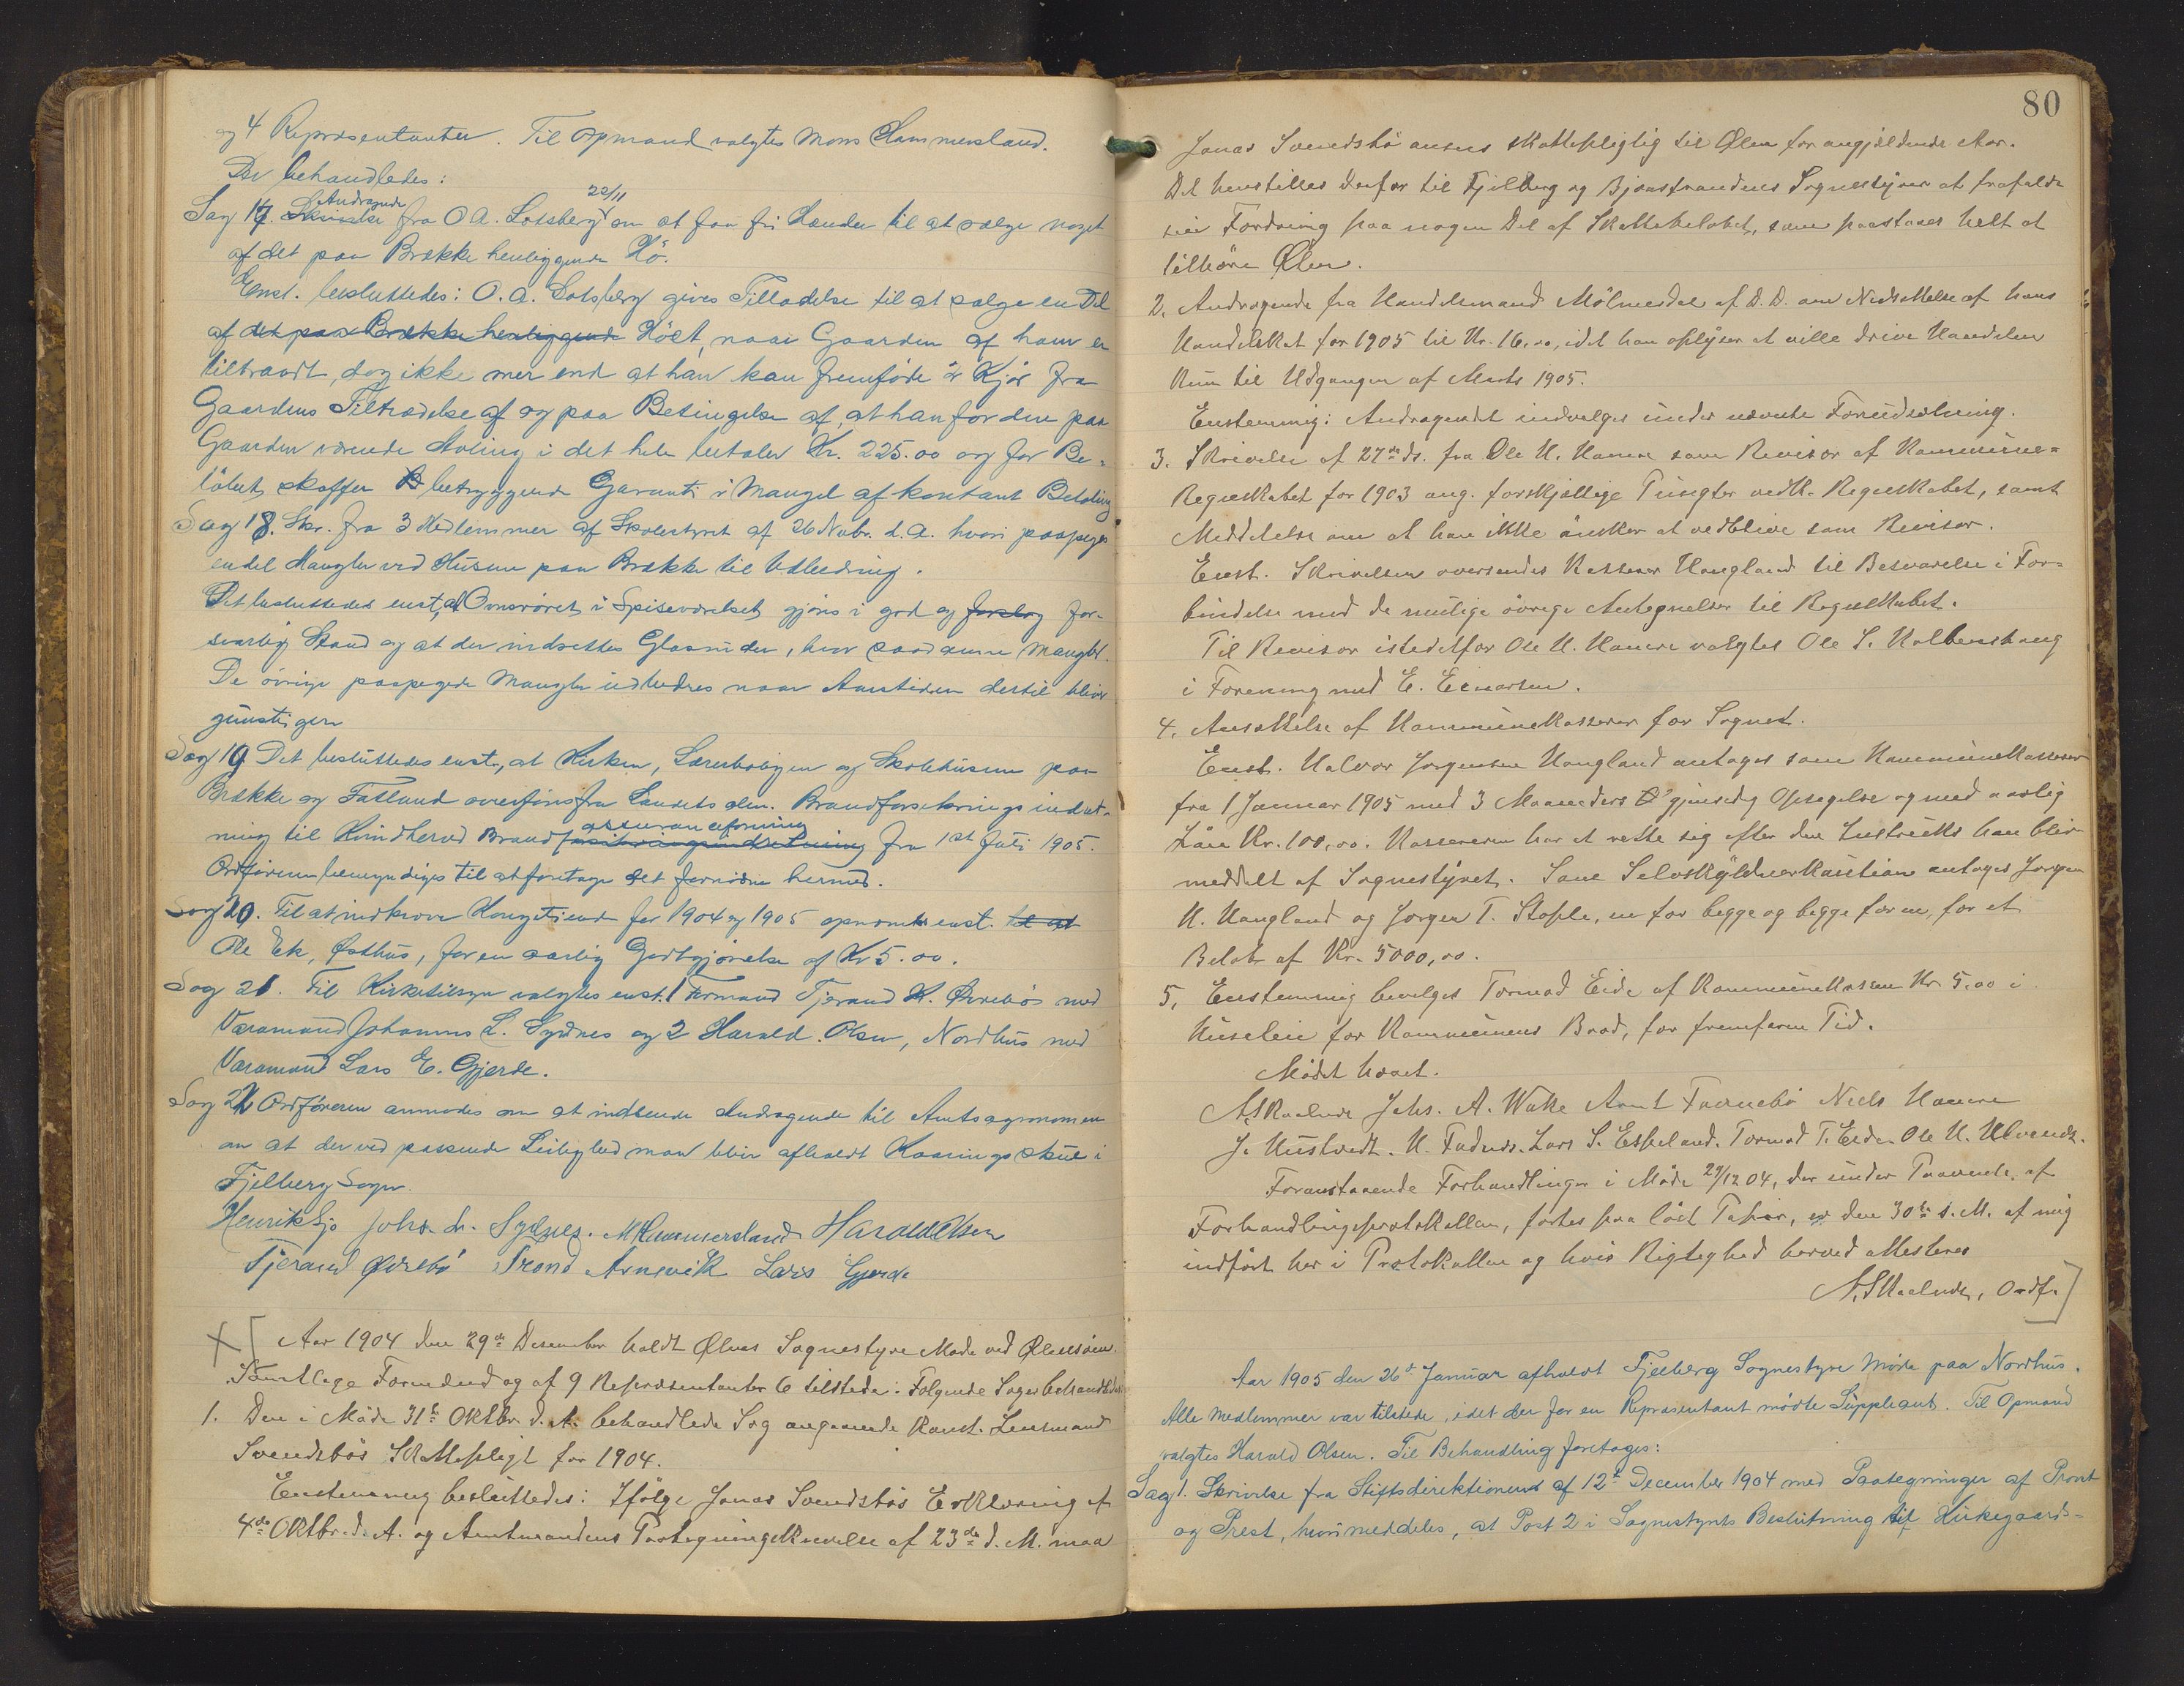 og 4 Repræsentanter. Til Opmand valgtes Mons Hammersland.
Der behandledes:
Sag 17. Andragende fra O A. Lotsberg 22/11 om at faa fri Hænder til at sælge noget
af det paa Brække henliggende Hø.
Enst. besluttedes: O. A. Lotsberg gives Tilladelse til at sælge en Del
af det paa Brække henliggende Höet, naar Gaarden af ham er
tiltraadt, dog ikke mer end at han kan fremføde 2 Kjør fra
Gaardens Tiltrædelse af og paa Betingelse af, at han for den paa
Gaarden værende Avling i det hele betaler Kr. 225.00 og for Be-
löbet skaffer betryggende Garanti i Mangel af kontant Betaling
Sag 18. Skr. fra 3 Medlemmer af Skolestyret af 26 Novbr. d. A. hvori paapeges
endel Mangler ved Husene paa Brække til Udbedring.
Det besluttedes enst, at Ovnsröret i Spiseværelset gjöres i god og forsvarlig for-
svarlig Stand og at der indsættes Glasruder, hvor saadanne mangler.
De övrige paapegede Mangler udbedres naar Aarstiden dertil bliver
gunstigere
Sag 19 Det besluttedes enst., at Kirken, Lærerboligen og Skolehusene paa
Brække og Fatland overföres fra Landets alm. Brandforsikrings indret-
ning til Kvindherred Brandassuranceforening fra 1st Juli 1905.
Ordföreren bemyndiges til at foretage det fornödne hermed.
Sag 20. Til at indkræve Kongetiende for 1904 og 1905 opnævntes enst. til at
Ole Ek, Østhus, for en aarlig Godtgjörelse af Kr 5.00.
Sag 21. Til Kirketilsyn valgtes enst. 1 Formand Tjerand K. Ørrebö med
Varamand Johannes L. Sydnes og 2 Harald Olsen, Nordhus med
Varamand Lars E. Gjerde.
Sag 22 Ordföreren anmodes om at indsende Andragende til Amtsagronomen
om at der ved passende Leilighed maa blive afholdt Kaaringsskue i
Fjelberg Sogn.
Henrik Sjo Johs. L. Sydnes. M Hammersland Harald Olsen
Tjerand Ørrebö Trond Arnevik Lars Gjerde
Aar 1904 den 29de Desember holdt Ølens Sognestyre Møde ved Ølensöen.
Samtlige Formænd og af 9 Repræsentanter 6 tilstede. Følgende Sager behandledes:
1. Den i Møde 31te Oktbr. d. A. behandlede Sag angaaende Konst. Lensmand
Svendsbös Skattepligt for 1904.
Enstemmig besluttedes: Ifölge Jonas Svendsbös Erklæring af
4de Oktbr. d. A. og Amtmandens Paategningsskrivelse af 23de d. M. maa
80
Jonas Svendsbö ansees skattepligtig til Ølen for angjældende Aar.
Det henstilles derfor til Fjelberg og Bjoastrandens Sognestyrer at frafalde
sin Fordring paa nogen Del af Skattebeløbet, som paastaaes helt at
tilhøre Ølen.
2. Andragende fra Handelsmand Mölmesdal af D. D. om Nedsættelse af hans
Handelskat for 1905 til Kr. 16,00, idet han oplyser at ville drive Handelen
kun til Udgangen af Marts 1905.
Enstemmig: Andragendet indvilges under nævnte Forudsætning.
3. Skrivelse af 27de ds. fra Ole H. Hamre som Revisor af Kommune-
Regnskabet for 1903 ang. forskjellige Ting vedk. Regnskabet, samt
Meddelelse om at han ikke ønsker at vedblive som Revisor.
Enst. Skrivelsen oversendes Kasserer Haugland til Besvarelse i For-
bindelse med de mulige övrige Antegnelser til Regnskabet.
Til Revisor istedetfor Ole H. Hamre valgtes Ole S. Kalbenshaug
i Forening med E. Einarsen.
4. Ansættelse af Kommunekasserer for Sognet.
Enst. Halvor Jørgensen Haugland antages som Kommunekasserer
fra 1 Januar 1905 med 3 Maaneders gjensidig Opsigelse og med aarlig
Løn Kr. 100,00. Kassereren har at rette sig efter den Instruks han blir
meddelt af Sognestyret. Som Selvskyldnerkautione antages Jørgen
H. Haugland og Jørgen T. Stople, en for begge og begge for en, for et
Beløb af Kr. 5000,00.
5. Enstemmig bevilges Tormod Eide af Kommunekassen Kr. 5,00 i
Husleie for Kommunens Baad, for fremfaren Tid.
Mødet hævet.
N. Skaalnes Johs. A. Wake Arnt Tarnebö Niels Hamre
J. Hustvedt. H. Fadnes. Lars S. Espeland. Tormod T. Eide. Ole H. Ulvenes.
Foranstaaende Forhandlinger i Møde 29/12 04, der under Fravær af
Forhandlingsprotokollen, førtes paa löst Papir, er den 30te s. M. af mig
indført her i Protokollen og hvis Rigtighed herved attesteres
N. Skaalnes, Ordf.
Aar 1905 den 26de Januar afholdt Fjelberg Sognestyre Møde paa Nordhus.
Alle Medlemmer var tilstede, idet der for en Repræsentant mødte Suppleant. Til Opmand
valgtes Harald Olsen. Til Behandling foretages:
Sag 1. Skrivelse fra Stiftsdirektionen af 12te December 1904 med Paategninger af Provst
og Prest, hvori meddeles, at Post 2 i Sognestyrets Beslutning til Kirkegaards-